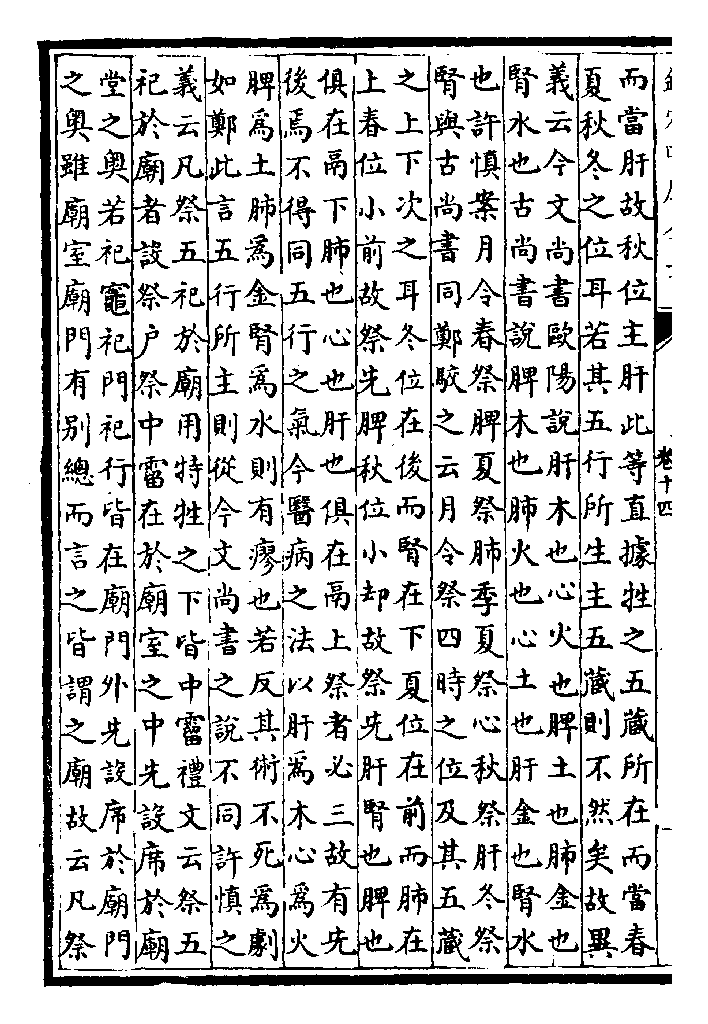 卷十四
而當肝故秋位主肝此等直據牲之五藏所在而當春
夏秋冬之位耳若其五行所生主五藏則不然矣故異
義云今文尚書歐陽說肝木也心火也脾土也肺金也
腎水也古尚書說脾木也肺火也心土也肝金也腎水
也許慎案月令春祭脾夏祭肺季夏祭心秋祭肝冬祭
腎與古尚書同鄭駮之云月令祭四時之位及其五藏
之上下次之耳冬位在後而腎在下夏位在前而肺在
上春位小前故祭先脾秋位小却故祭先肝腎也脾也
俱在鬲下肺也心也肝也俱在鬲上祭者必三故有先
後焉不得同五行之氣今醫病之法以肝為木心為火
脾為土肺為金腎為水則有瘳也若反其術不死為劇
如鄭此言五行所主則從今文尚書之說不同許慎之
義云凡祭五祀於廟用特牲之下皆中霤禮文云祭五
祀於廟者設祭户祭中霤在於廟室之中先設席於廟
堂之奥若祀竈祀門祀行皆在廟門外先設席於廟門
之奥雖廟室廟門有别總而言之皆謂之廟故云凡祭